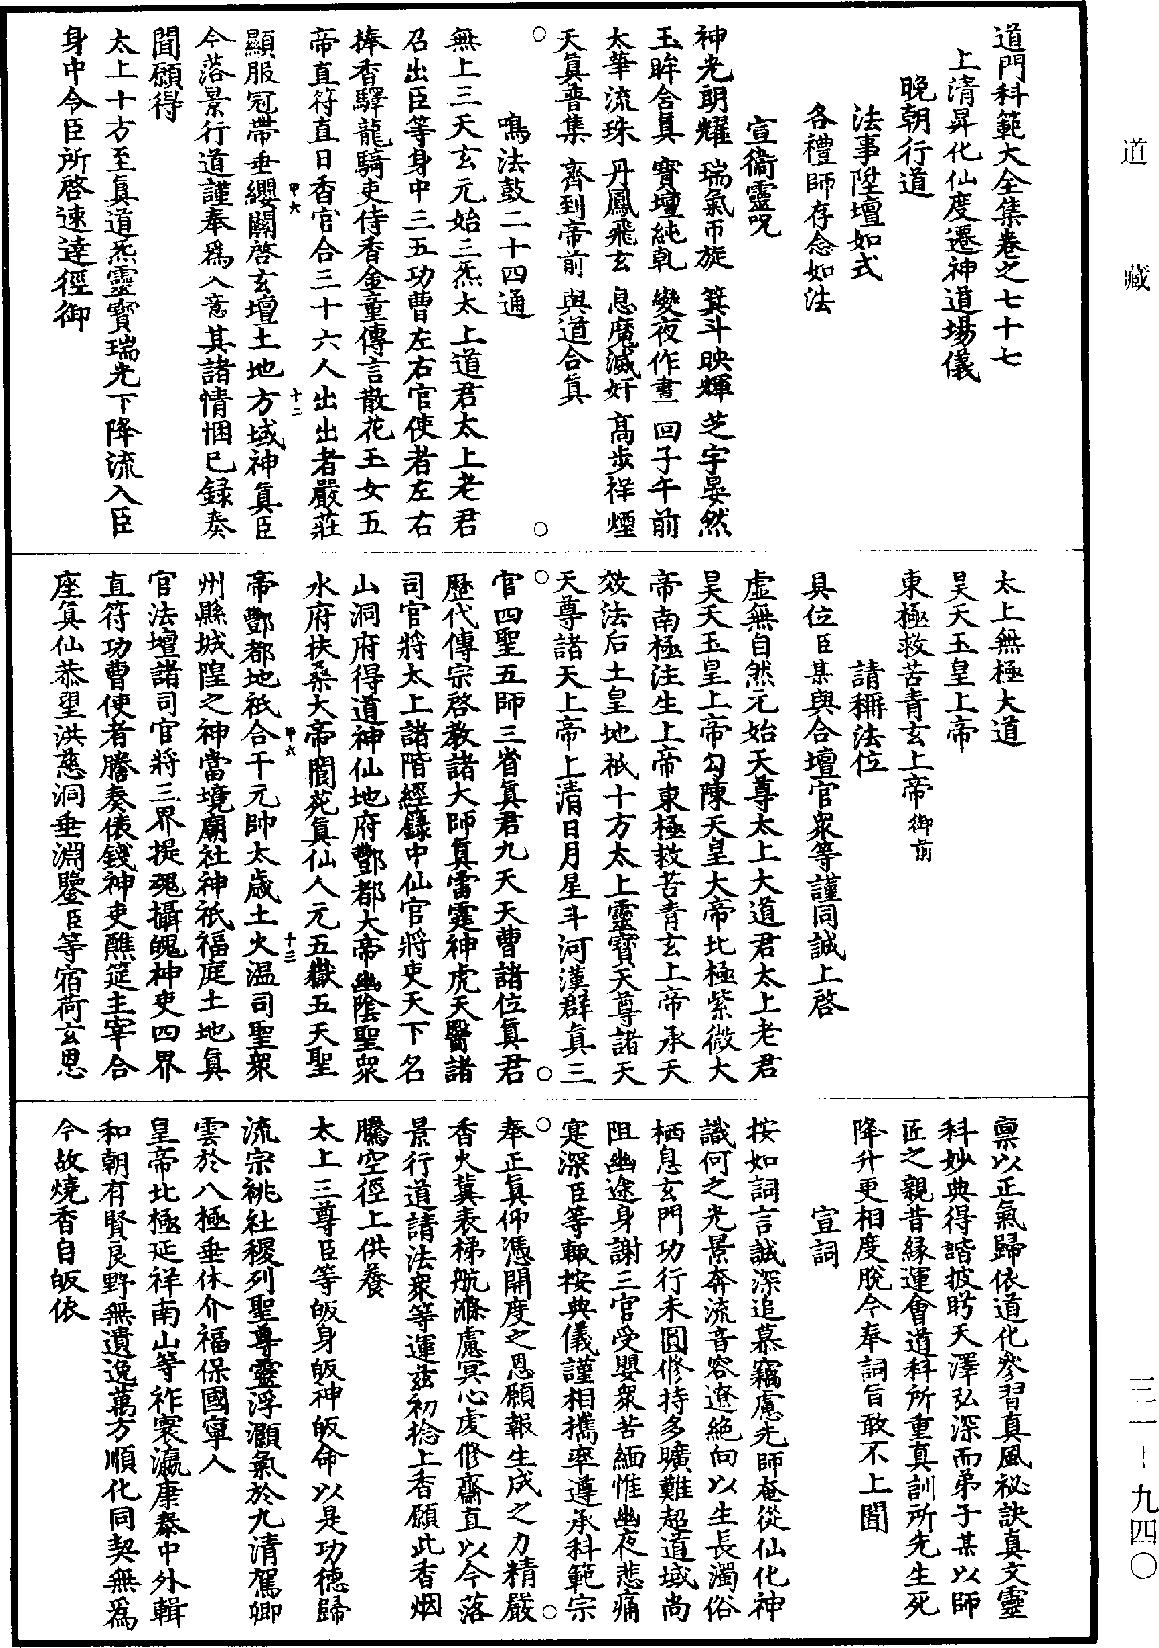 道藏
三二－九四〇
道門科範大全集卷之七十七
上清昇化仙度遷神道場儀
晚朝行道
法事陞壇如式
各禮師存念如法
宣衞靈呪
神光朗耀 瑞氣帀旋 箕斗映輝 芝宇晏然
玉眸含真 寶壇純乹 變夜作晝 回子午前
太華流珠 丹鳳飛玄 息魔滅奸 髙步祥煙
天真普集 齊到帝前 與道合真
鳴法鼓二十四通
無上三天玄元始三炁太上道君太上老君
召出臣等身中三五功曹左右官使者左右
捧香驛龍騎吏侍香金童傳言散花玉女五
帝直符直日香官合三十六人出出者嚴莊
顯服冠帶垂纓關啓玄壇土地方域神真臣
今落景行道謹奉爲入意其諸情悃已録奏
聞願得
太上十方至真道炁靈寶瑞光下降流入臣
身中令臣所啓速達徑御
太上無極大道
昊天玉皇上帝
東極救苦青玄上帝御前
請稱法位
具位臣某與合壇官衆等謹同誠上啓
虛無自然元始天尊太上大道君太上老君
昊天玉皇上帝勾陳天皇大帝北極紫微大
帝南極注生上帝東極救苦青玄上帝承天
效法后土皇地祇十方太上靈寶天尊諸天
天尊諸天上帝上清日月星斗河漢群真三
官四聖五師三省真君九天天曹諸位真君
歷代傳宗啓教諸大師真雷霆神虎天醫諸
司官將太上諸階經籙中仙官將吏天下名
山洞府得道神仙地府酆都大帝幽陰聖衆
水府扶桑大帝閬苑真仙人元五嶽五天聖
帝酆都地祇合干元帥太歲土火温司聖衆
州縣城隍之神當境廟社神祇福庭土地真
官法壇諸司官將三界提魂攝魄神吏四界
直符功曹使者謄奏俵錢神吏醮筵主宰合
座真仙恭望洪慈洞垂淵鑒臣等宿荷玄恩
禀以正氣歸依道化參習真風祕訣真文靈
科妙典得諧披眄天澤弘深而弟子某以師
匠之親昔縁運會道科所重真訓所先生死
降升更相度脫今奉詞旨敢不上聞
宣詞
按如詞言誠深追慕竊慮先師奄從仙化神
識何之光景奔流音容遼絶向以生長濁俗
栖息玄門功行未圓修持多曠難超道域尚
阻幽途身謝三官受嬰衆苦緬惟幽夜悲痛
寔深臣等輒按典儀謹相攜率遵承科範宗
奉正真仰憑開度之恩願報生成之力精嚴
香火冀表梯航滌慮冥心虔修齋直以今落
景行道請法衆等運茲初捻上香願此香烟
騰空徑上供養
太上三尊臣等皈身皈神皈命以是功德歸
流宗祧社稷列聖尊靈浮灝氣於九清駕卿
雲於八極垂休介福保國寧人
皇帝北極延祥南山等祚寰瀛康泰中外輯
和朝有賢良野無遺逸萬方順化同契無爲
今故燒香自皈依